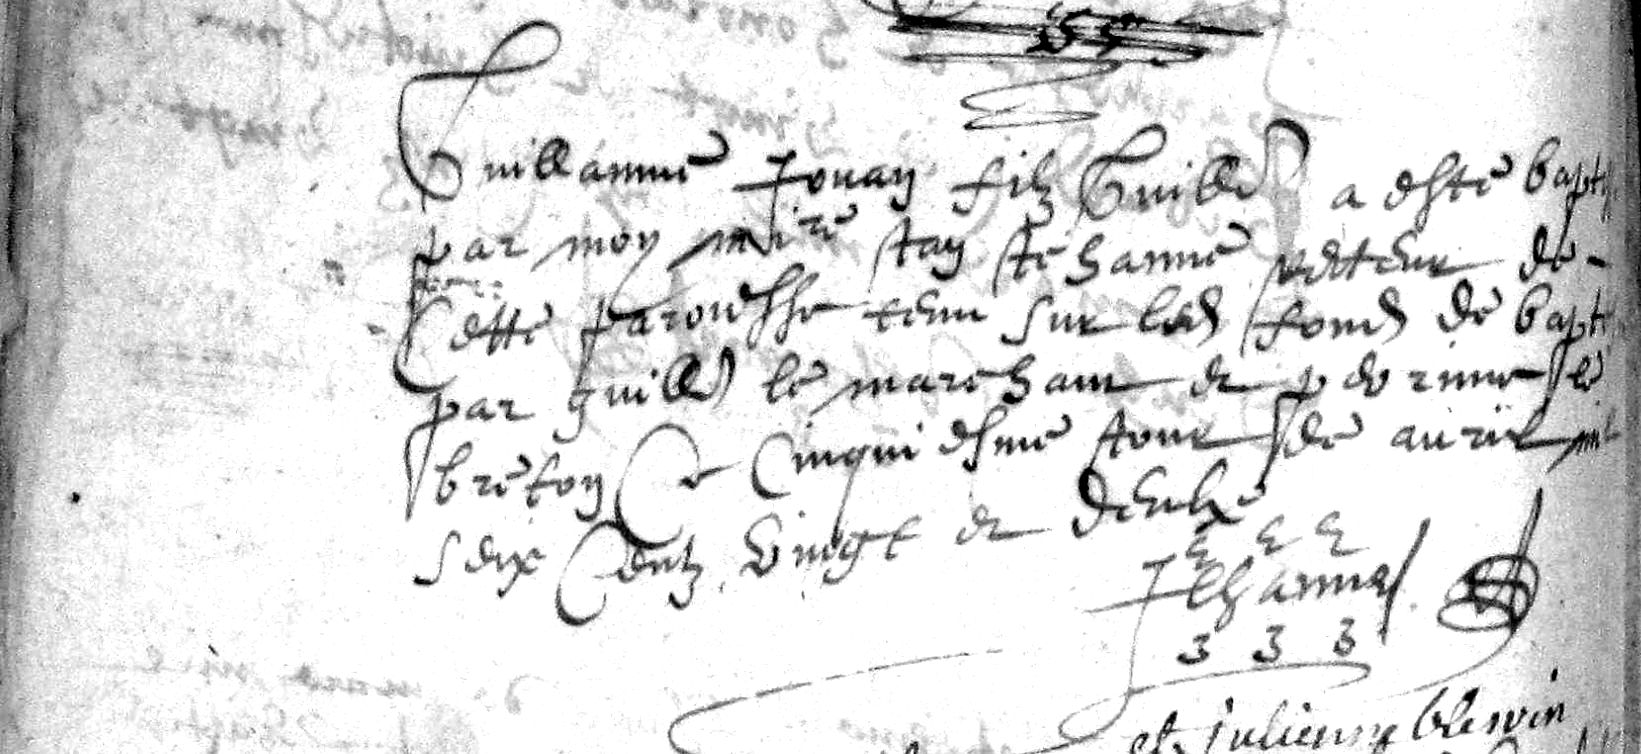 Guillaume Jouan filz Guille a esté bapt
par moy Jan Jehanne recteur de
Cette paroesse tenu sur les fons de bapt
par guille le marchant et perrinne le
breton Ce Cinquiesme jour de auril mil
seix Centz vingt et deulx
Jehanne
3 3 3
et julienne blevin